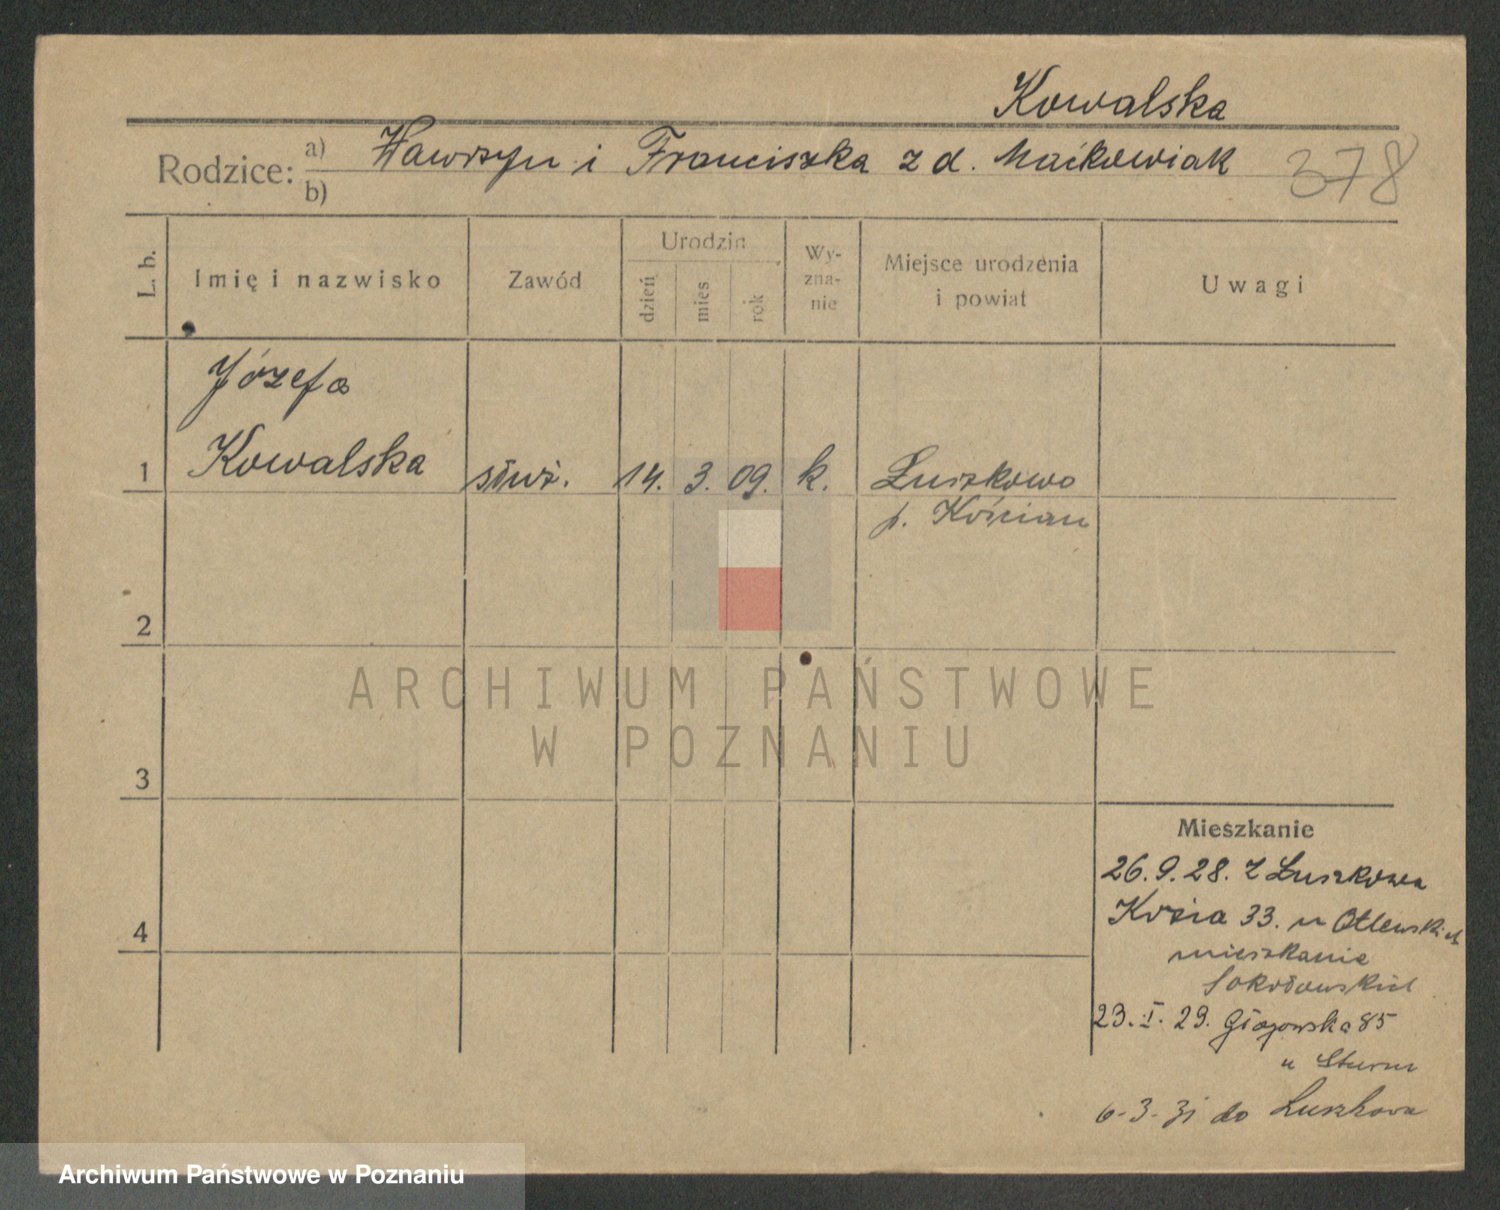 Kowalska
Rodzice: a) Wawrzyn i Franciszka z d. Maćkowiak
b)
378
L. b.
Imię i nazwisko
Zawód
Urodzin
dzień
mies
rok
Wy-
zna-
nie
Miejsce urodzenia
i powiat
Uwagi
Józefa
1 Kowalska służ. 14. 3. 09. k. Łuszkowo
p. Kościan
2
ARCHIWUM PAŃSTWOWE
W POZNANIU
3
Mieszkanie
26.9.28. z Łuszkowa
4
33. u Otlewskich
mieszkanie
Sokołowskich
23.I.29. Głogowska 85
u Sturm
6-3-31 do Łuszkowa
Archiwum Państwowe w Poznaniu